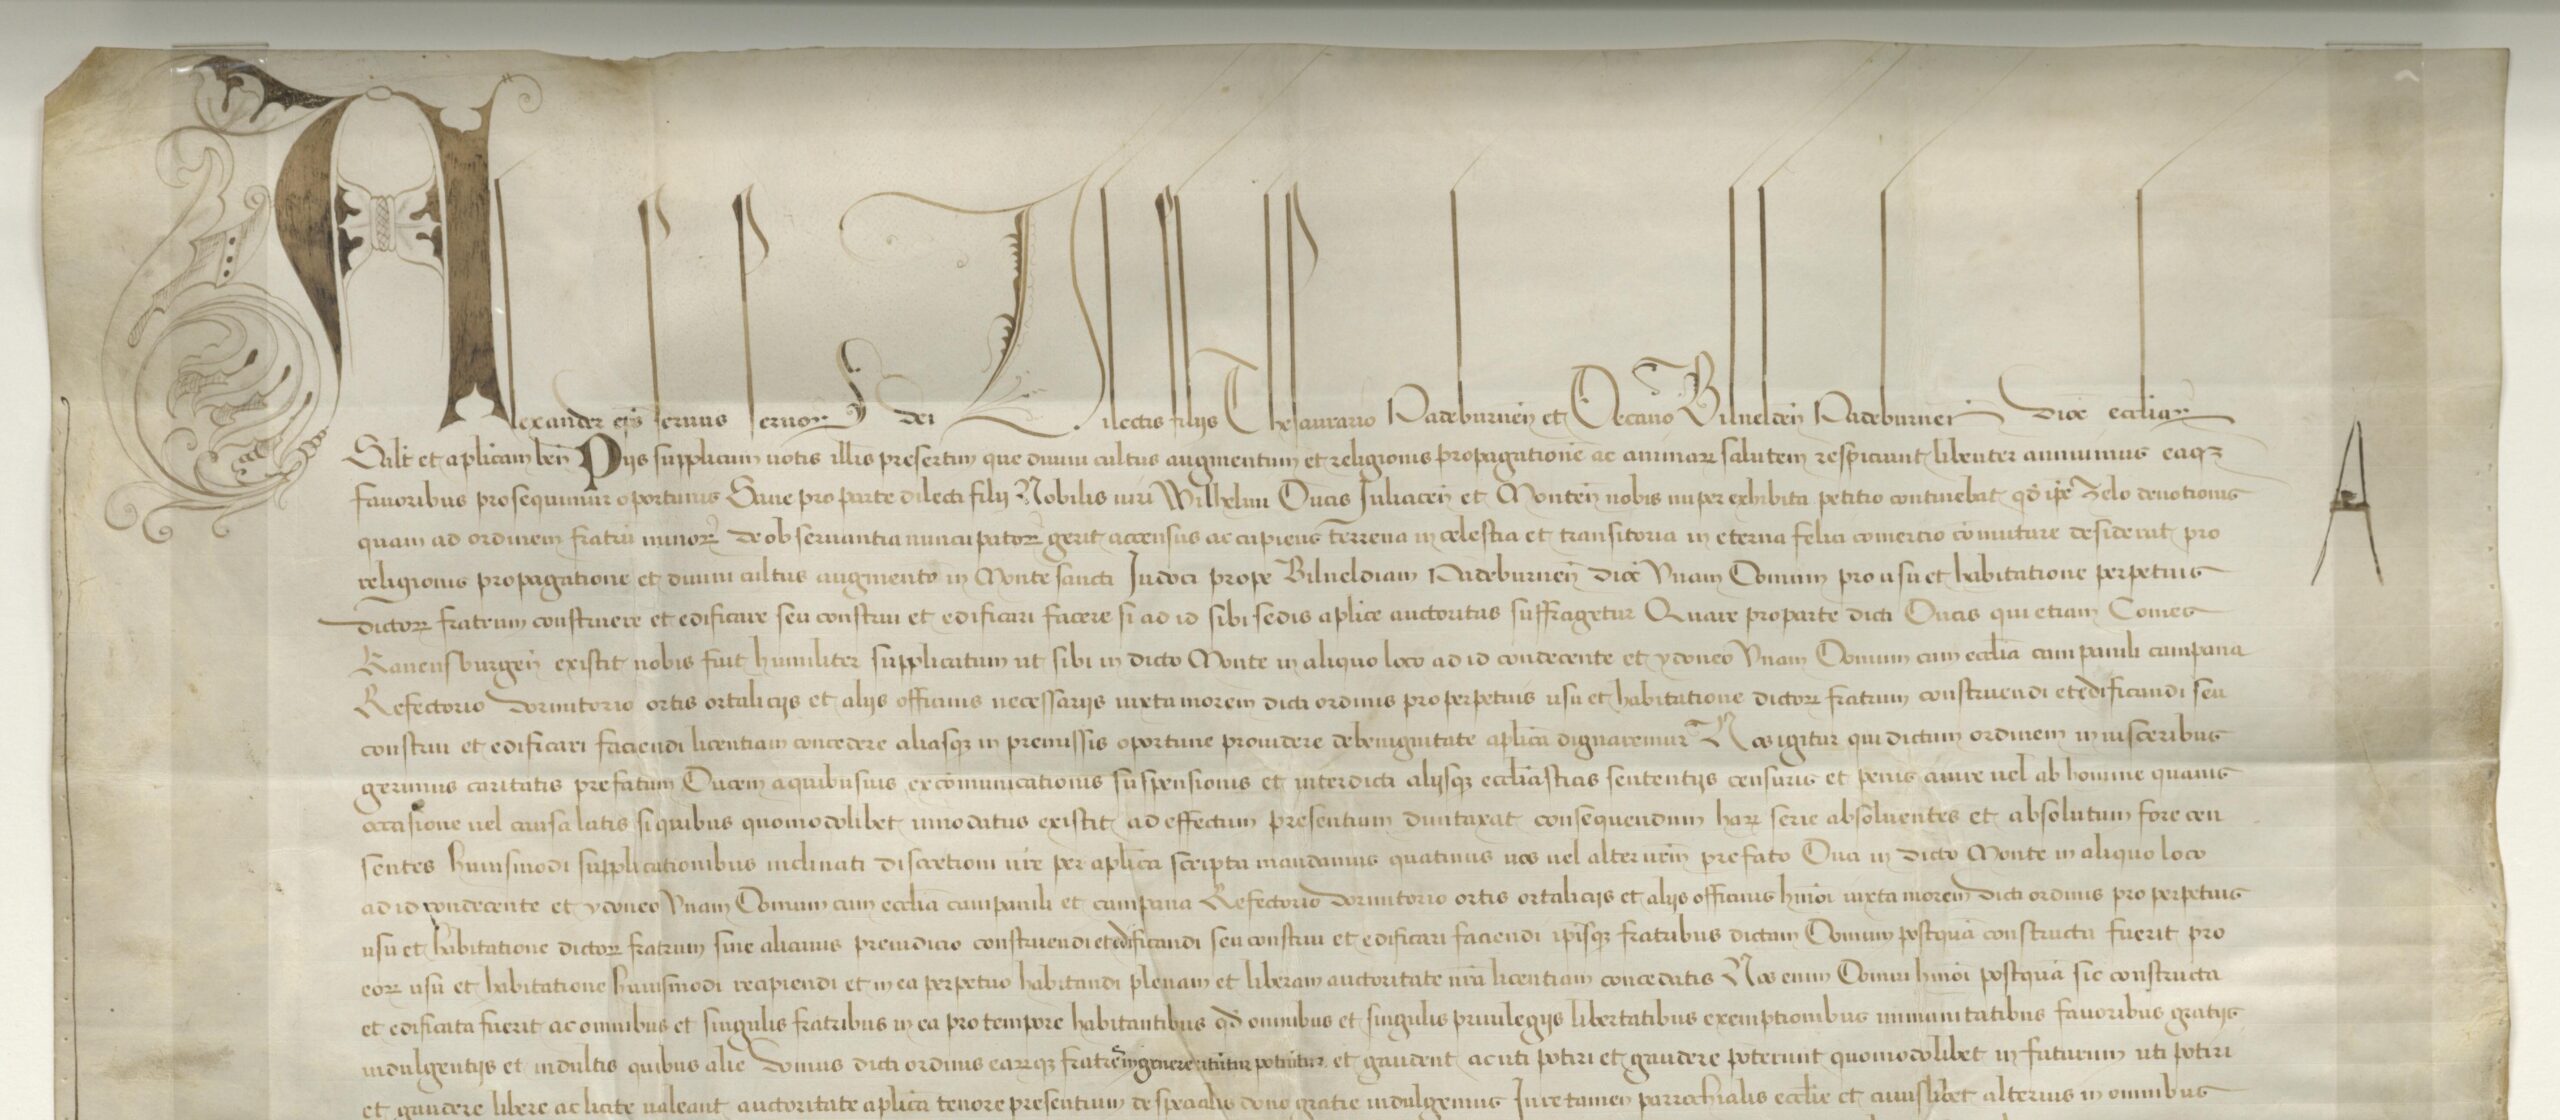 Alexander ep̄s seruus seruoꝝ dei Dilectis filijs Thesaurario Padeburneñ et Decano Bilueldeñ Padeburneñ dioc̄ eccliaꝝ
Salt̄ et aplicam beñ Pijs supplicum uotis illis presertim que diuini cultus augmentum et religionis propagationē ac animaꝝ salutem respiciunt libenter annuimus eaqꝫ
fauoribus prosequimur oportunis Sane pro parte dilecti filij Nobilis uiri Wilhelmi Ducis Juliaceñ et Monteñ nobis nuper exhibita petitio continebat qd̄ ip̄e zelo deuotionis
quam ad ordinem fratrū minoꝝ de obseruantia nuncupatoꝝ gerit accensus ac cupiens terrena in celestia et transitoria in eterna felici comercio cōmutare desiderat pro
religionis propagatione et diuini cultus augmento in Monte sancti Judoci prope Bilueldiam Padeburneñ dioc̄ Vnam Domum pro usu et habitatione perpetuis
dictoꝝ fratrum construere et edificare seu construi et edificari facere si ad id sibi sedis aplice auctoritas suffragetur Quare pro parte dicti Ducis qui etiam Comes
Rauensburgeñ existit nobis fuit humiliter supplicatum ut sibi in dicto Monte in aliquo loco ad id condecente et ydoneo Vnam Domum cum ecclia campanili campana
Refectorio dormitorio ortis ortalicijs et alijs officinis necessarijs iuxta morem dicti ordinis pro perpetuis usu et habitatione dictoꝝ fratrum construendi et edificandi seu
construi et edificari faciendi licentiam concedere aliasqꝫ in premissis oportune prouidere de benignitate aplica dignaremur Nos igitur qui dictum ordinem in uisceribus
gerimus caritatis prefatum Ducem a quibusuis excōmunicationis suspensionis et interdicti alijsqꝫ eccliasticis sententijs censuris et penis a iure uel ab homine quauis
occasione uel causa latis si quibus quomodolibet innodatus existit ad effectum presentium duntaxat consequendum haꝝ serie absoluentes et absolutum fore cen
sentes huiusmodi supplicationibus inclinati discretioni ur̄e per aplica scripta mandamus quatinus uos uel alter ur̄m prefato Duci in dicto Monte in aliquo loco
ad id condecente et ydoneo Vnam Domum cum ecclia campanili et campana Refectorio dormitorio ortis ortalicijs et alijs officinis hmōi iuxta morem dicti ordinis pro perpetuis
usu et habitatione dictoꝝ fratrum sine alicuius preiudicio construendi et edificandi seu construi et edificari faciendi ip̄isqꝫ fratribus dictam Domum postquā constructa fuerit pro
eoꝝ usu et habitatione huiusmodi recipiendi et in ea perpetuo habitandi plenam et liberam auctoritate nr̄a licentiam concedatis Nos enim Domui hmōi postquā sic constructa
et edificata fuerit ac omnibus et singulis fratribus in ea pro tempore habitantibus qd̄ omnibus et singulis priuilegijs libertatibus exemptionibus immunitatibus fauoribus gratijs
indulgentijs et indultis quibus alie domus dicti ordinis earūqꝫ fratres in genere utūtur potiūtur et gaudent ac uti potiri et gaudere poterunt quomodolibet in futurum uti potiri
et gaudere libere ac licite ualeant auctoritate aplica tenore presentium de specialis dono gratie indulgemus Jure tamen parrochialis ecclie et cuiuslibet alterius in omnibus
A